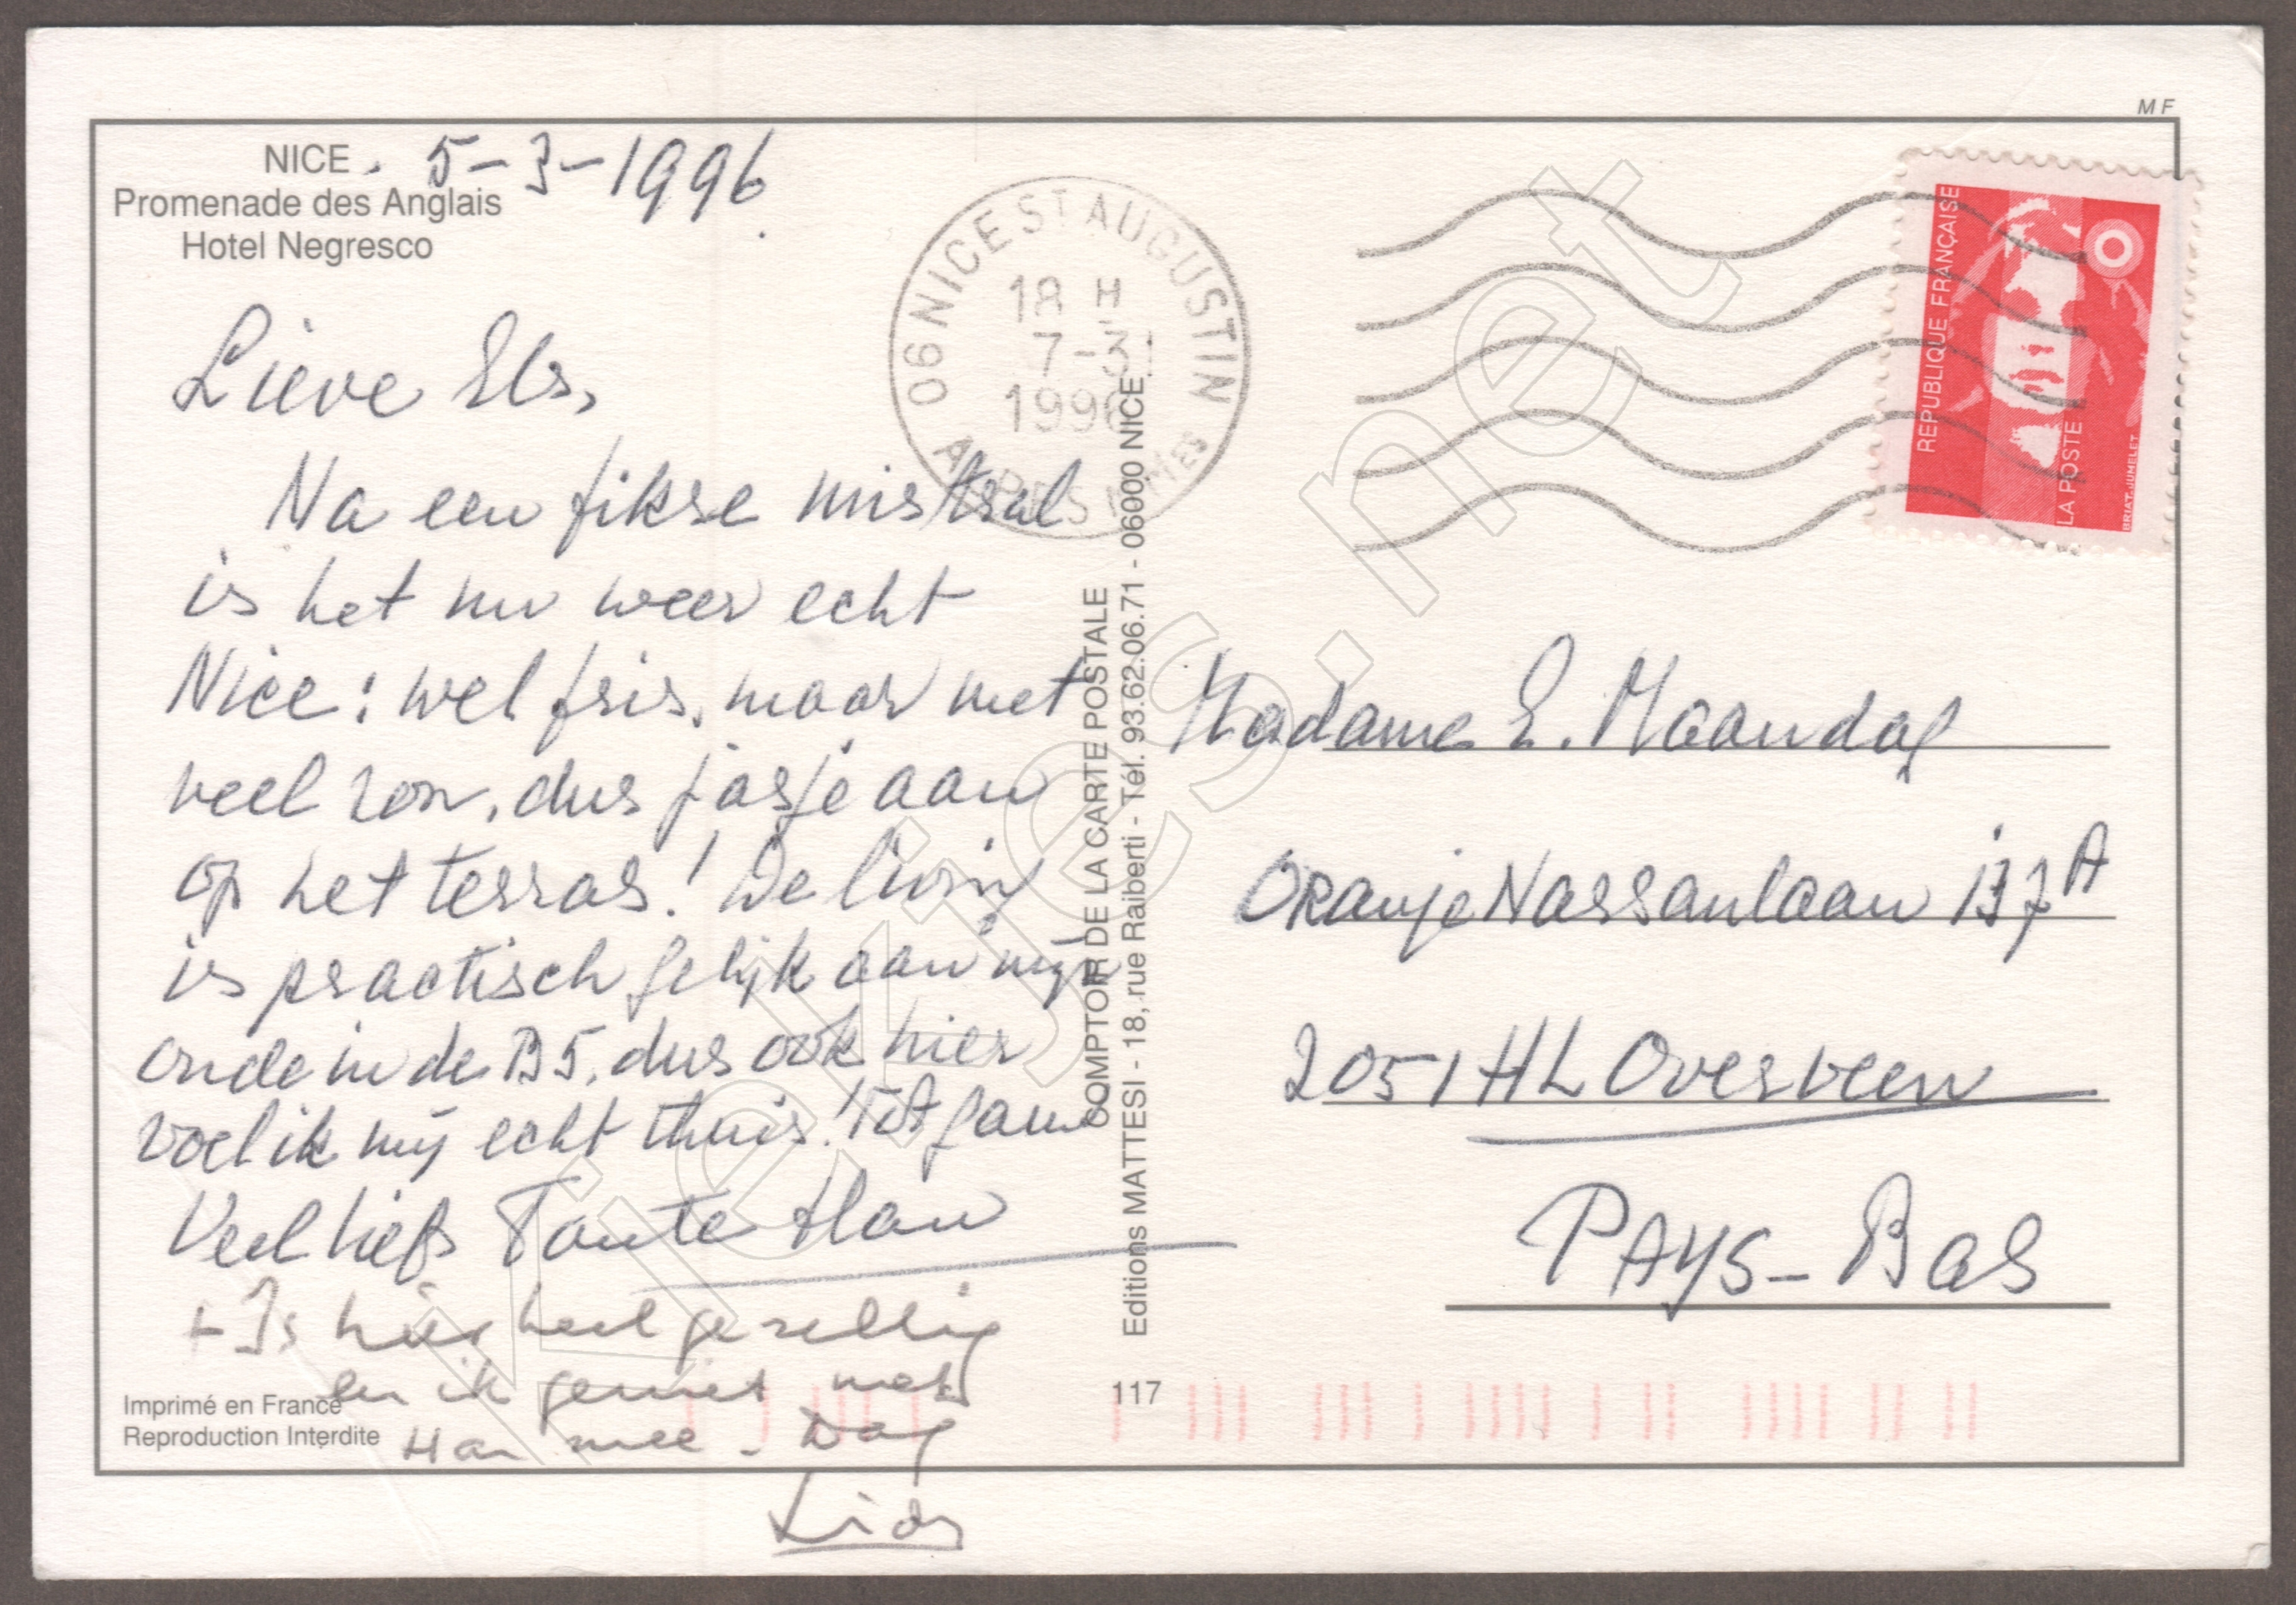 MF
NICE. 5-3-1996.
Promenade des Anglais
Hotel Negresco
Lieve Els,
Na een fikse mistral
is het nu weer echt
Nice: wel fris, maar met
veel zon, dus jasje aan
op het terras! De living
is practisch gelijk aan mijn
oude in de B5, dus ook hier
voel ik mij echt thuis! Tot gauw
Veel liefs Tante Han
+ Is hier heel gezellig
en ik geniet met
Han mee. Dag
Imprimé en France
Reproduction Interdite
COMPTOIR DE LA CARTE POSTALE
Editions MATTESI - 18, rue Raiberti - Tél. 93.62.06.71 - 06000 NICE
117
06 NICE ST AUGUSTIN
18 H
7-3
1996
ALPES MMES
REPUBLIQUE FRANÇAISE
LA POSTE
BRIAT-JUMELET
Madame E. Maandag
Oranje Nassaulaan 137A
2051 HL Overveen
PAYS-BAS
Kiekjes.net